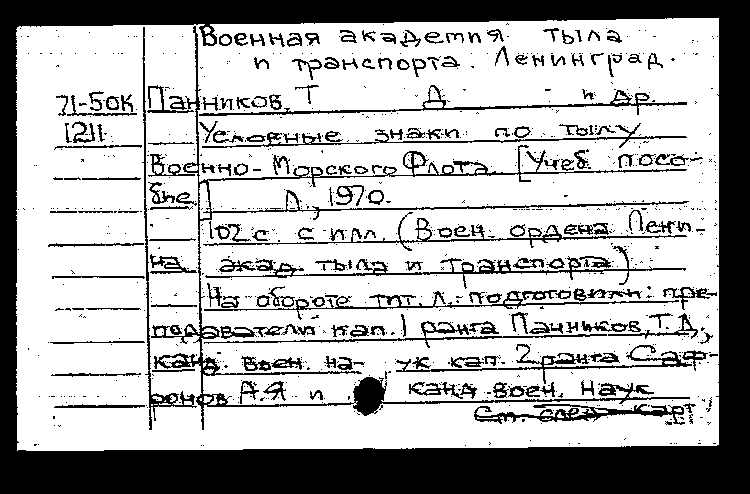 Военная академия тыла
и транспорта. Ленинград.
71-50К Панников, Т Д и др.
1211 Условные знаки по тылу
Военно-Морского Флота. [Учеб. посо-
бие] Л., 1970.
102 с. с илл. (Воен. ордена Лени-
на акад. тыла и транспорта)
На обороте тит. л.: подготовили: пре-
подаватели кап. 1 ранга Панников, Т.Д.,
канд. воен. на- ук кап. 2 ранга Саф-
ронов А.Я и канд. воен. наук
См. след. карт